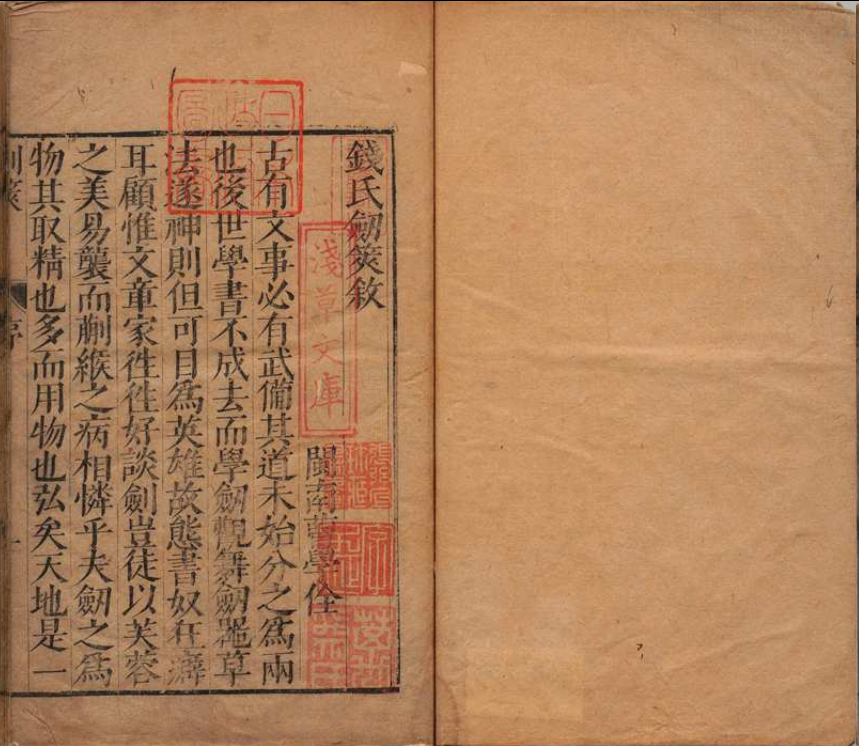 錢氏劒筴敘
淺草文庫
閩南曹學佺
古有文事必有武備其道未始分之爲兩
也後世學書不成去而學劒觀舞劒器草
法遂神則但可目爲英雄故態書奴狂癖
耳顧惟文章家徃徃好談劍豈徒以芙蓉
之美易襲而蒯緱之病相憐乎夫劒之爲
物其取精也多而用物也弘矣天地是一
序